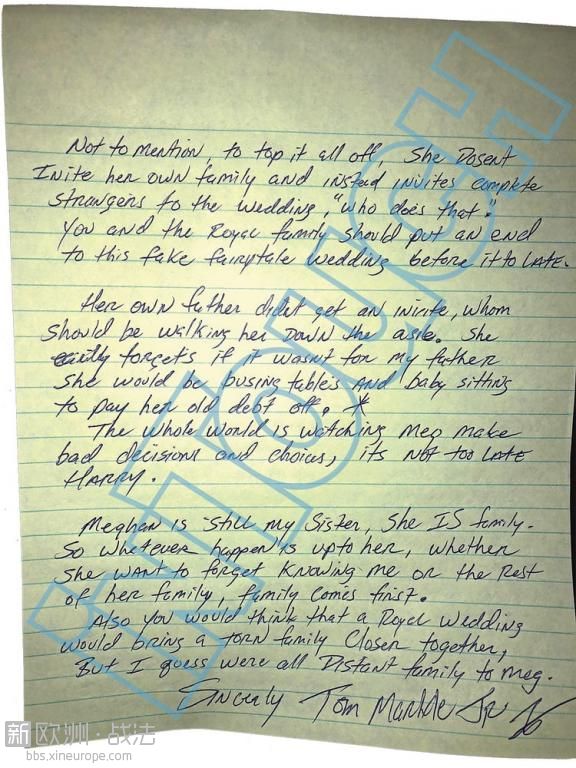 Not to mention, to top it all off, She Dosent
Inite her own family and instead invites complete
strangers to the wedding, "who does that."
You and the Royal family should put an end
to this fake fairytale wedding before it to LATE.
Her own father didnt get an inite, whom
should be walking her Down the asle. She
forgets if it wasnt for my father
She would be busing tables And baby sitting
to pay her old debt off. *
The whole world is watching Meg make
bad decisions and choices, its NOT TOO LATE
HARRY.
Meghan is still my Sister, She IS family.
So whatever happen is upto her, whether
She WANT to forget Knowing me or the Rest
of her family, family comes first.
Also you would think that a Royal Wedding
would bring a torn family Closer together,
But I guess were all Distant family to Meg.
Sincerly Tom Markle Jr
InTouch
新欧洲·战法
bbs.xineurope.com